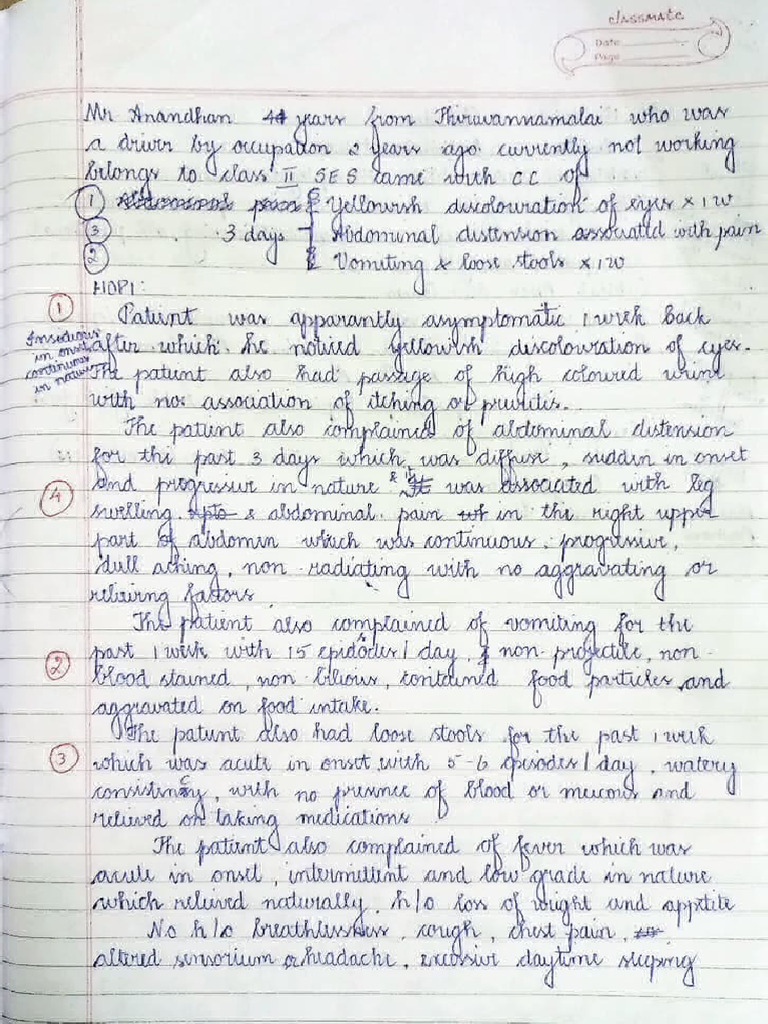 classmate
Date
Page
Mr Anandhan 44 years from Thiruvannamalai who was
a driver by occupation 2 years ago currently not working
belongs to class II SES came with CC of
① Yellowish discolouration of eyes x 1w
③ 3 days Abdominal distension associated with pain
② Vomiting & loose stools x 1w
HOPI:
① Patient was apparantly asymptomatic 1 week back
after which he noticed yellowish discolouration of eyes.
Insedious
in onset
continuous
in nature
The patient also had passage of high coloured urine
with no association of itching or pruritis.
The patient also complained of abdominal distension
for the past 3 days which was diffuse, sudden in onset
④ and progressive in nature & it was associated with leg
swelling & abdominal pain in the right upper
part of abdomen which was continuous, progressive,
dull aching, non-radiating with no aggravating or
relieving factors
The patient also complained of vomiting for the
② past 1 week with 15 episodes/day, non-projectile, non-
blood stained, non bilious, contained food particles and
aggravated on food intake.
The patient also had loose stools for the past 1 week
③ which was acute in onset with 5-6 episodes/day, watery
consistency, with no presence of blood or mucous and
relieved on taking medications
The patient also complained of fever which was
acute in onset, intermittent and low grade in nature
which relieved naturally, h/o loss of weight and appetite
No h/o breathlessness, cough, chest pain,
altered sensorium or headache, excessive daytime sleeping